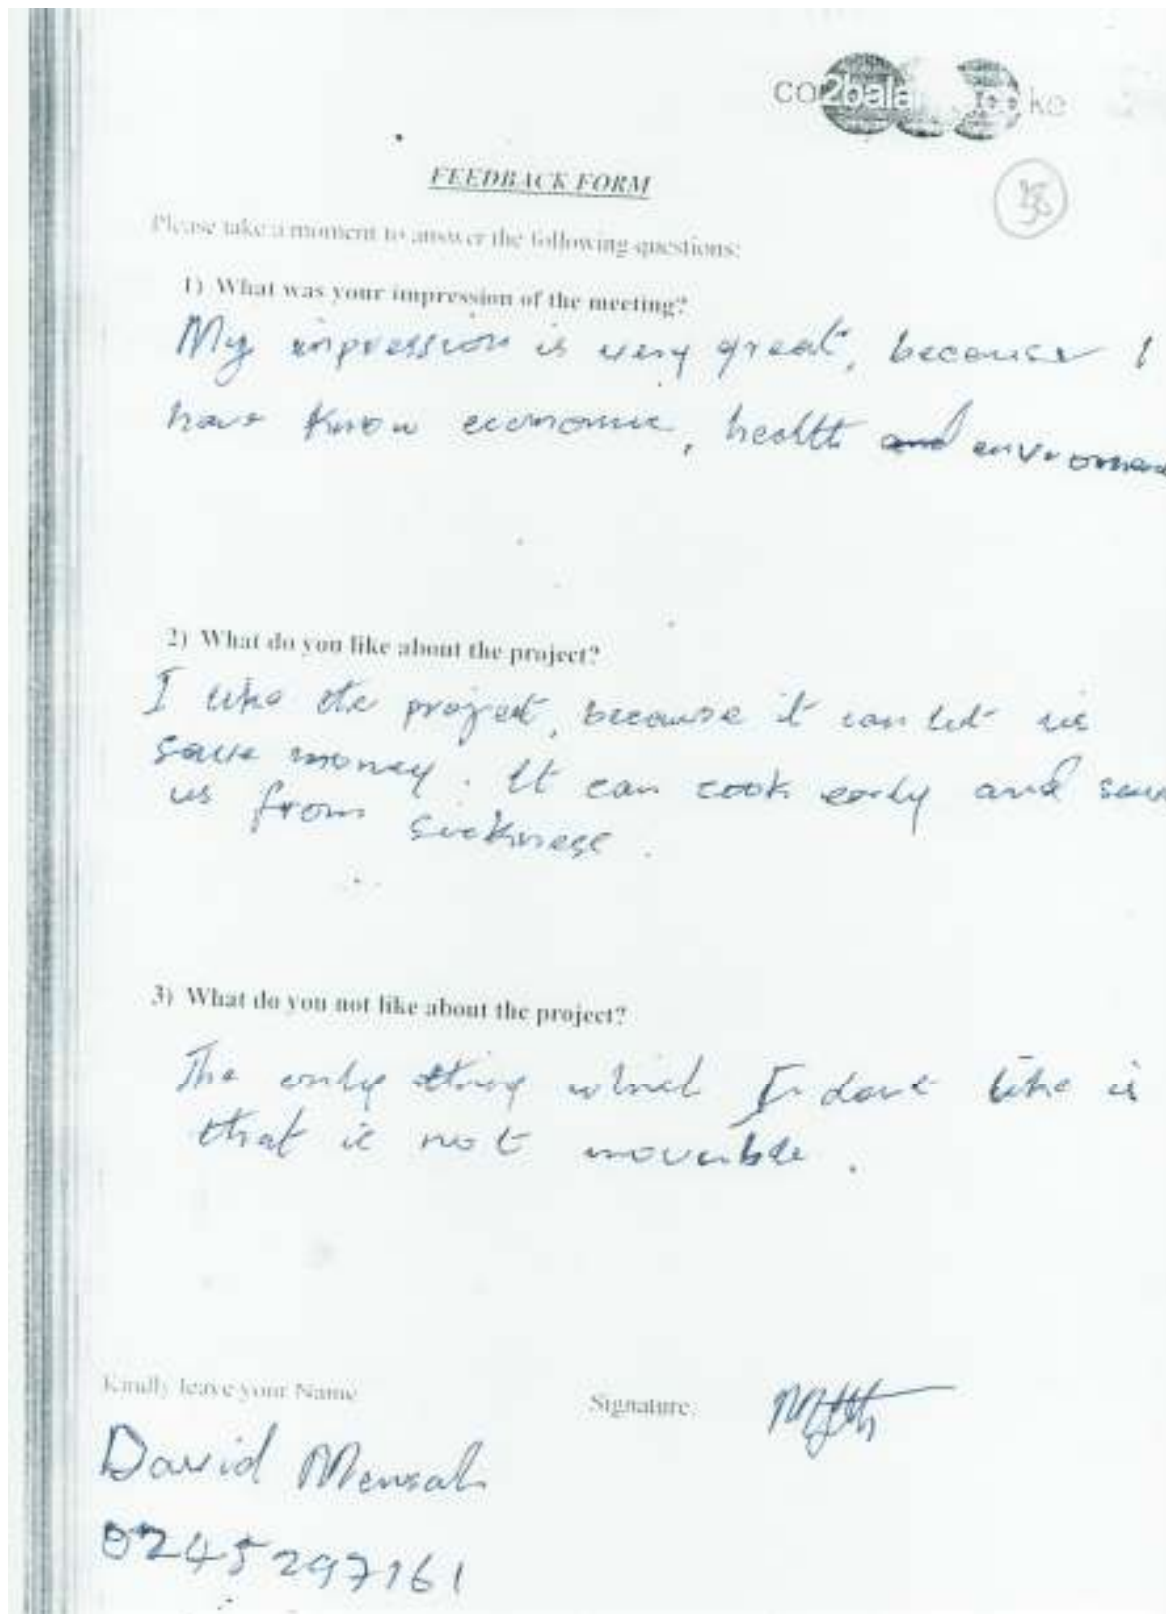 co2bala
FEEDBACK FORM
Please take a moment to answer the following questions:
1) What was your impression of the meeting?
My impression is very great, because I
have know economic, health and
2) What do you like about the project?
I like the project, because it can let us
save money. It can cook early and
us from sickness.
3) What do you not like about the project?
The only thing which I dont like is
that is not movable.
Kindly leave your Name
Signature.
David Mensah
0245297161